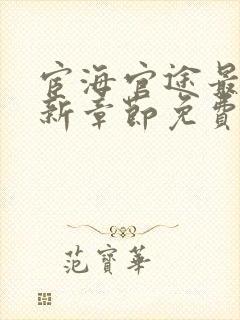 宦海官途最
新章節免費
范寶華